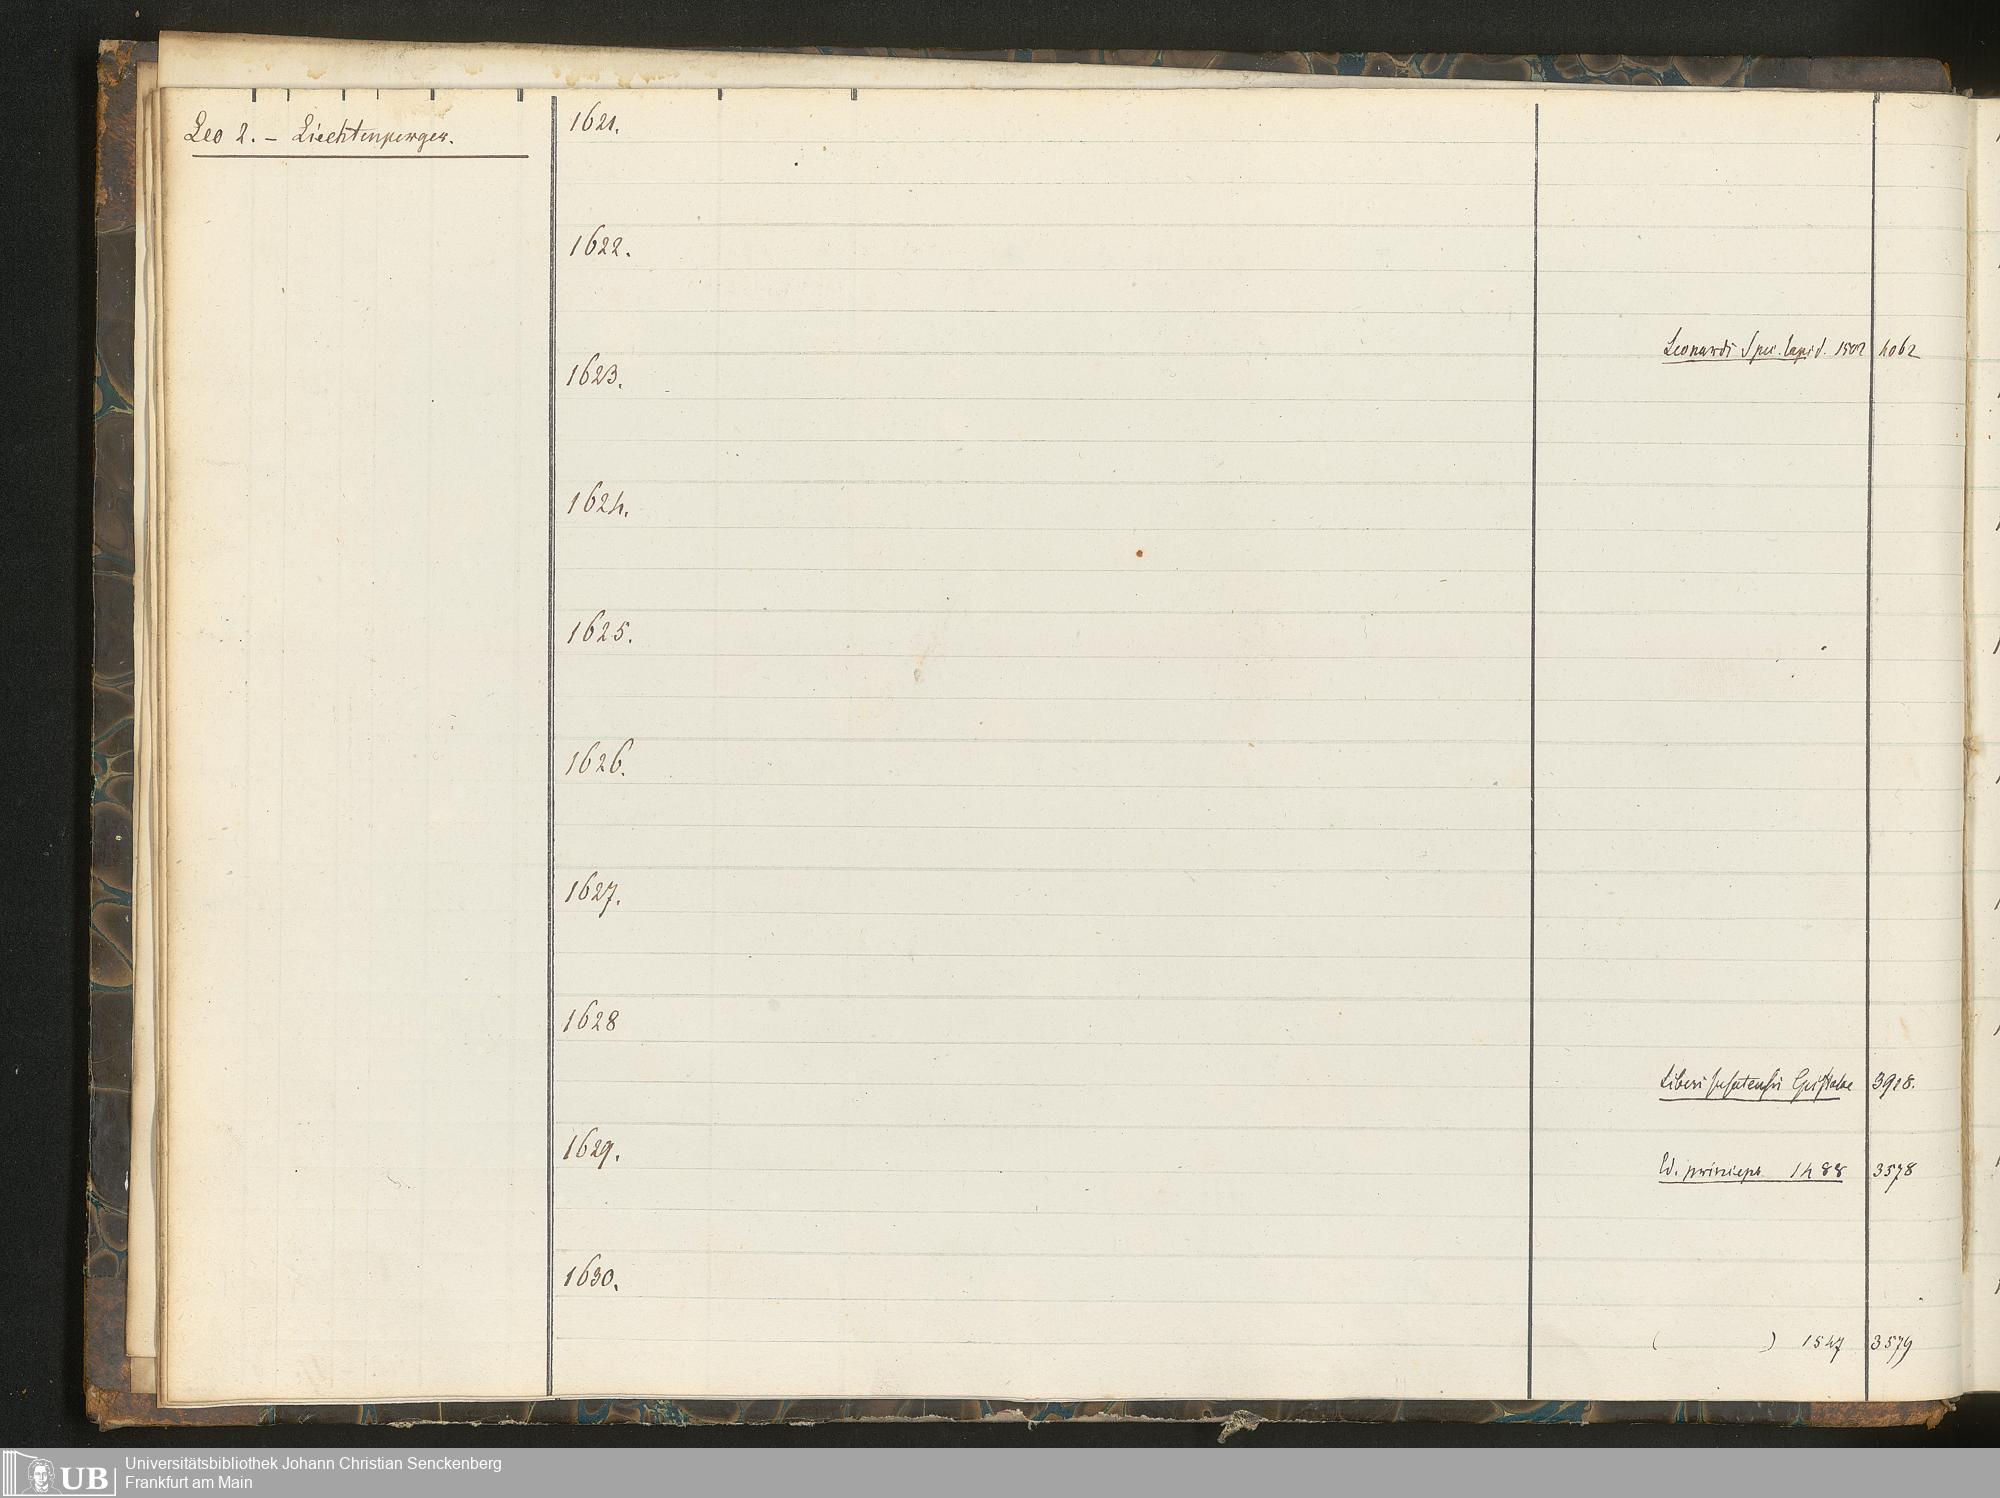 Leo 2. – Liechtenperger.
1621.
1622.
Leonardi Spec. lapid. 1502 4062
1623.
1624.
1625.
1626.
1627.
1628
Liberi Epistolae 3928.
1629.
Ed. princeps 1488 3578
1630.
( ) 1547 3579
UB
Universitätsbibliothek Johann Christian Senckenberg
Frankfurt am Main